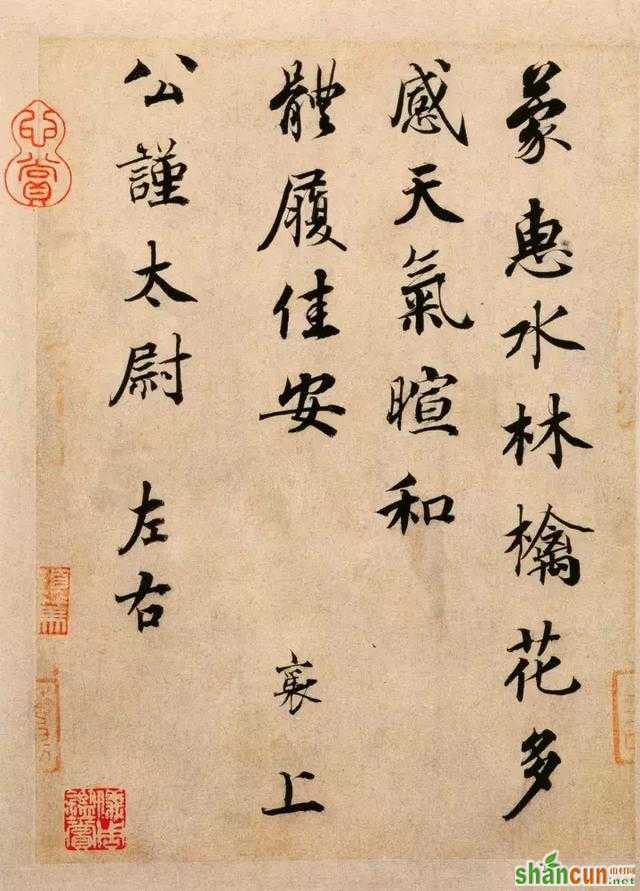 蒙惠水林檎花多
感天氣暄和
體履佳安
襄上
公謹太尉 左右
shancun
山村网
.net